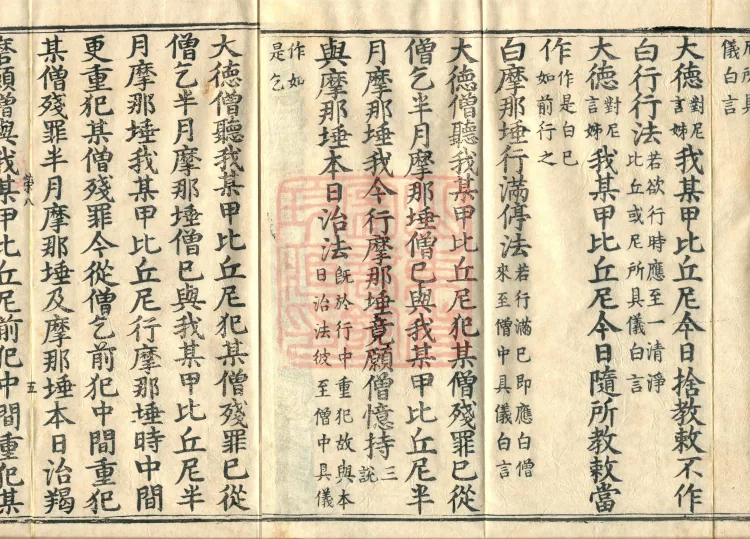 儀白言
大德對尼言姊我某甲比丘尼今日捨教敕不作
白行行法若欲行時應至一清淨比丘或尼所具儀白言
大德對尼言姊我某甲比丘尼今日隨所教敕當
作作是白已如前行之
白摩那埵行滿停法若行滿已即應白僧來至僧中具儀白言
大德僧聽我某甲比丘尼犯某僧殘罪已從
僧乞半月摩那埵僧已與我某甲比丘尼半
月摩那埵我今行摩那埵竟願僧憶持三說
與摩那埵本日治法既於行中重犯故與本日治法彼至僧中具儀
作如是乞
大德僧聽我某甲比丘尼犯某僧殘罪已從
僧乞半月摩那埵僧已與我某甲比丘尼半
月摩那埵我某甲比丘尼行摩那埵時中間
更重犯某僧殘罪今從僧乞前犯中間重犯
某僧殘罪半月摩那埵及摩那埵本日治羯
榮八 五
磨願僧與我某甲比丘尼前犯中間重犯某